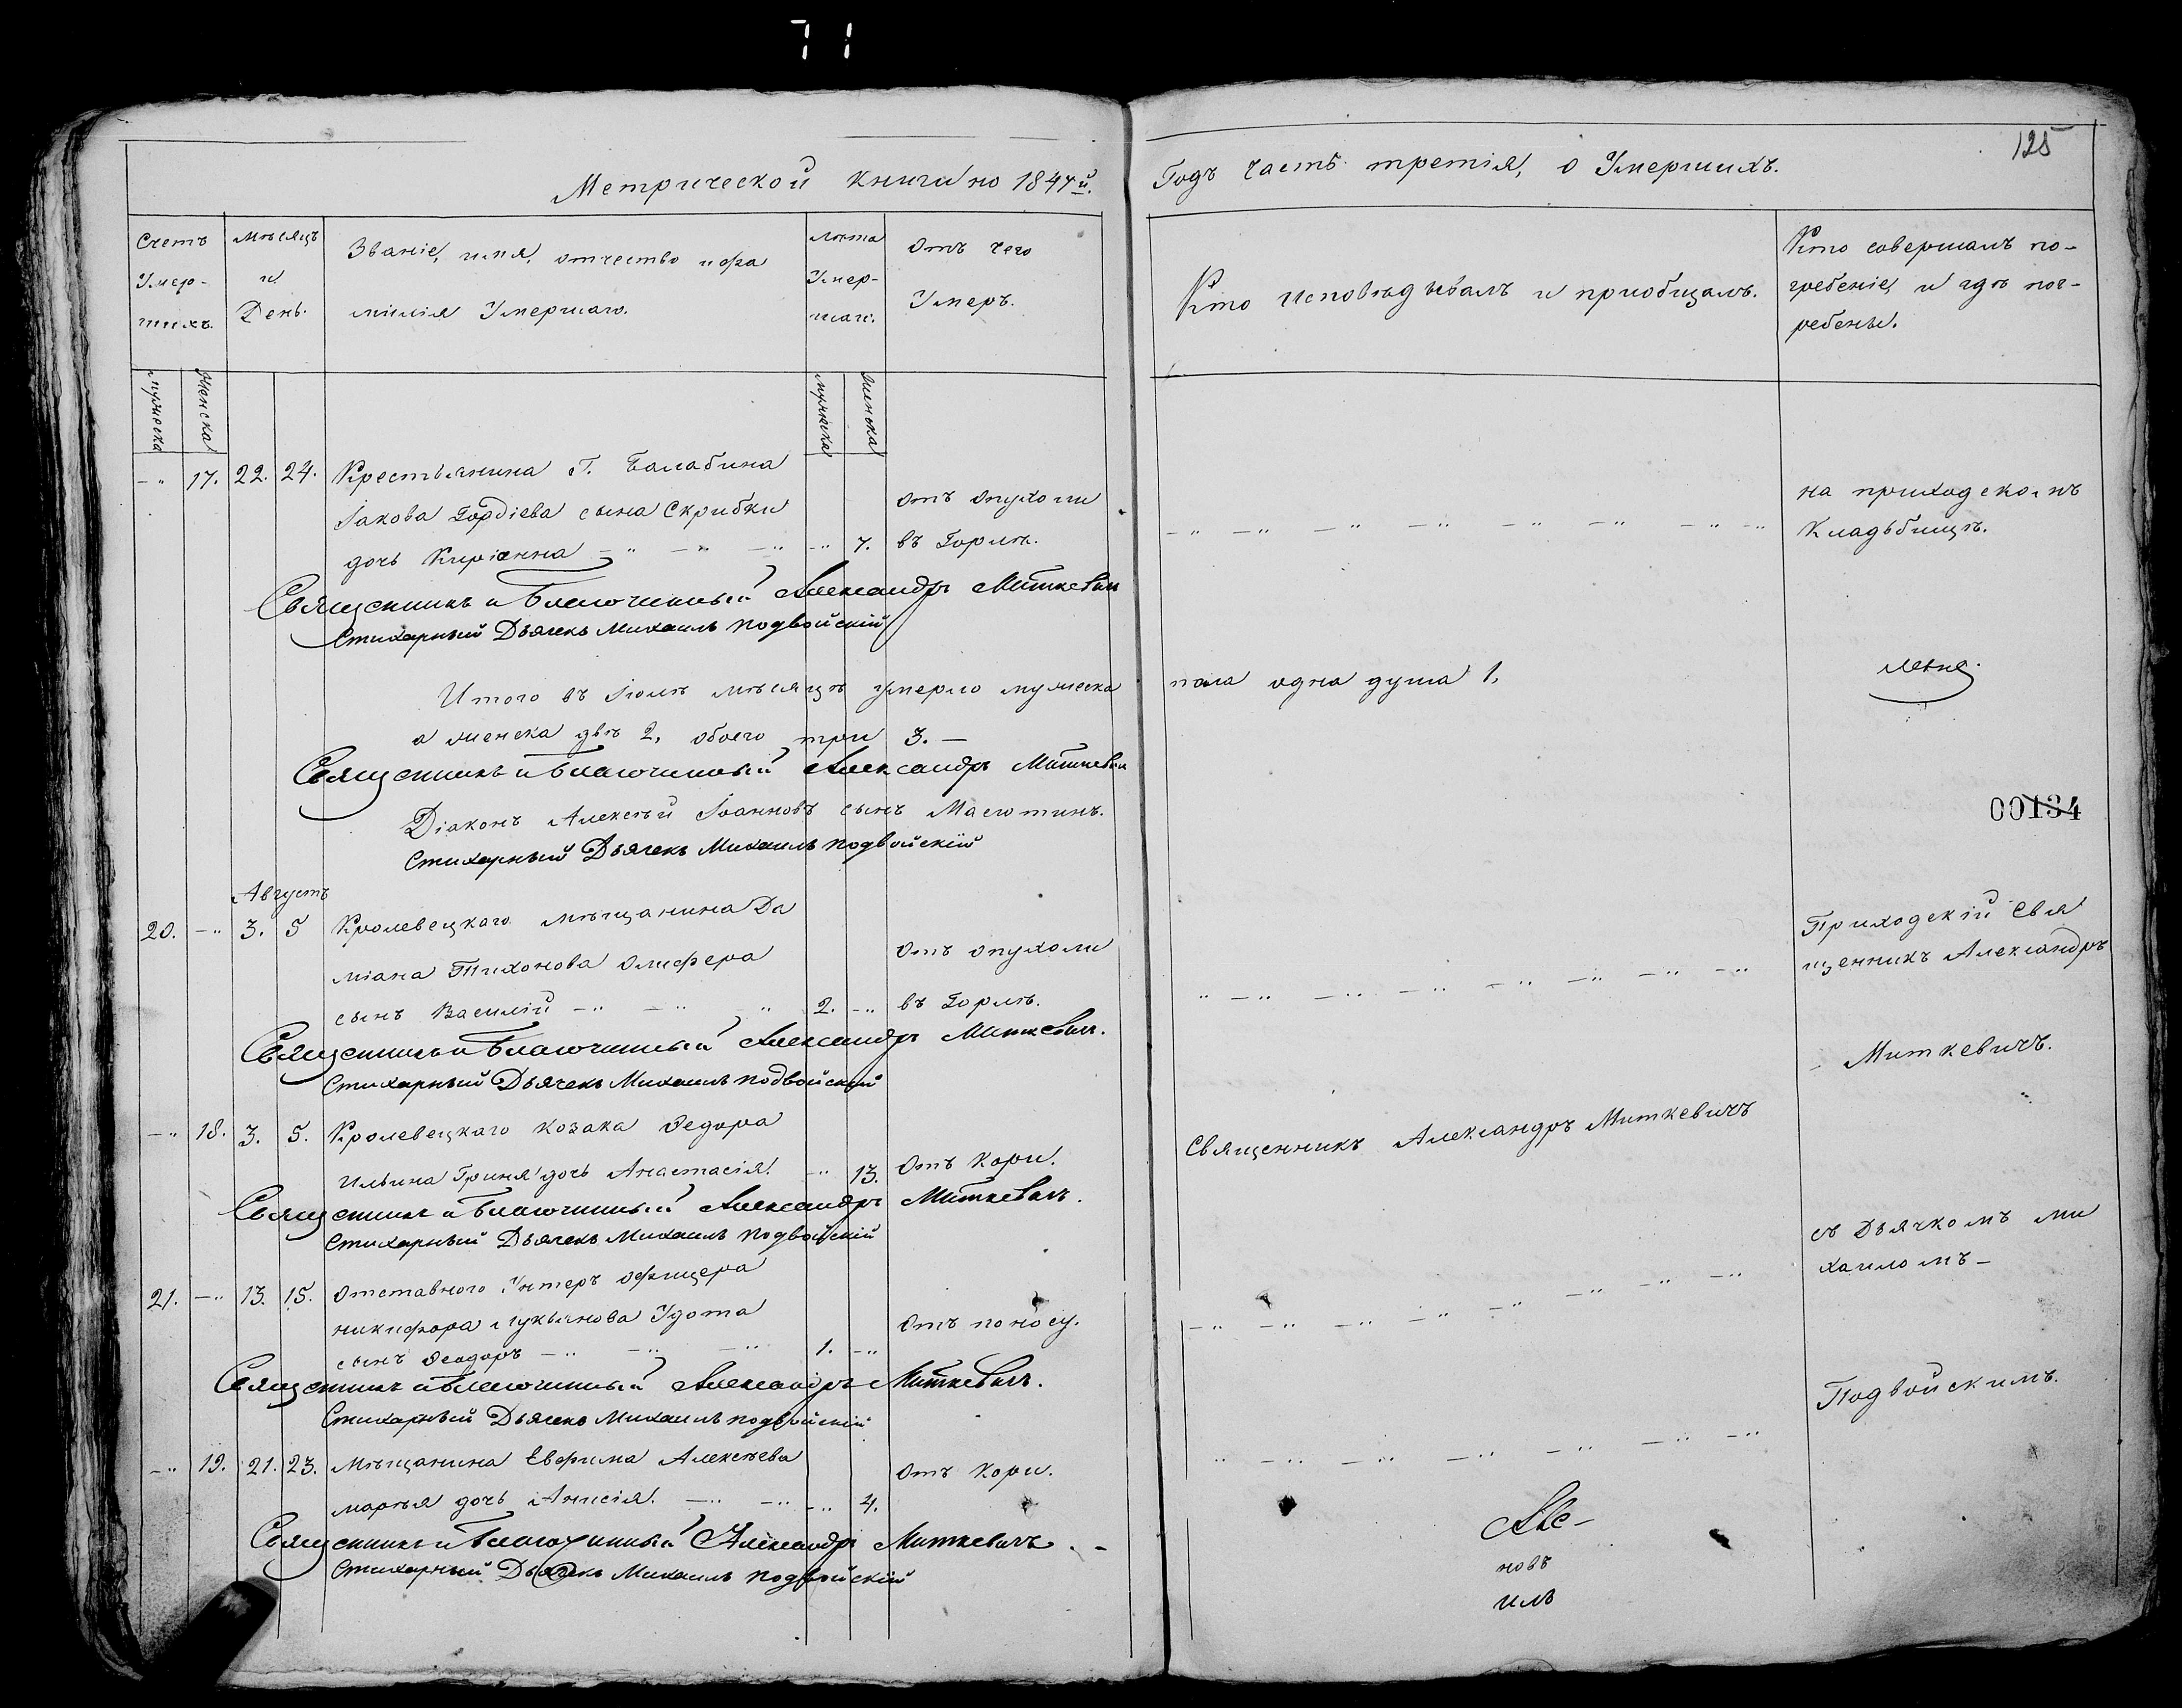 71
125
Метрической книги по 1847й.
Годъ часть третія, о Умершихъ.
Счетъ
Умер-
шихъ.
Мѣсяцъ
и
День.
Званіе, имя, отчество и фа
милія Умершаго.
лѣта
Умер-
шаг.
Отъ чего
Умеръ.
Кто исповѣдывалъ и пріобщалъ.
Кто совершалъ по-
гребеніе, и гдѣ пог-
ребены.
мужеска
Женска
мужеска
женска
-„ 17. 22. 24. Крестьянина Г. Балабина
Іакова Гордіева сына Скрибки
дочь Киріанна -„ -„ -„ -„ 7.
Отъ опухоли
въ Горлѣ.
на приходскомъ
Кладьбищѣ.
Священникъ и Благочинный Александръ Миткевич
Стихарный Дьячекъ Михаилъ Подвойскій
Итого въ Іюлѣ мѣсяцѣ умерло мужеска
пола одна душа 1,
а женска двѣ 2, обоего три 3. —
Священникъ и Благочинный Александръ Миткевич
Діаконъ Алексѣй Іоанновъ сынъ Масютинъ.
Стихарный Дьячекъ Михаилъ Подвойскій
00134
Августъ
20. -„ 3. 5 Кролевецкаго мѣщанина Да
міана Тихонова Олифера
сынъ Василій -„ -„ „ 2. -„
Отъ опухоли
въ Горлѣ.
Приходскій Свя
щенникъ Александръ
Миткевичъ.
Священникъ и Благочинный Александръ Миткевичъ.
Стихарный Дьячекъ Михаилъ Подвойскій
-„ 18. 3. 5. Кролевецкаго козака Федора
Ильина Гриня дочь Анастасія. -„ 13. Отъ Кори.
Священникъ Александръ Миткевичъ
Священникъ и Благочинный Александръ Миткевичъ.
Стихарный Дьячекъ Михаилъ Подвойскій
съ Дьячкомъ Ми
хаиломъ –
21. -„ 13. 15. Отставного Унтеръ Офицера
Никифора Лукьянова Удота
сынъ Феодоръ -„ -„ -„ 1. -„
Отъ поносу.
Священникъ и Благочинный Александръ Миткевичъ.
Стихарный Дьячекъ Михаилъ Подвойскій
Подвойскимъ.
-„ 19. 21. 23. Мѣщанина Евфима Алексѣева
дочь Анисія. -„ -„ -„ 4.
Отъ Кори.
Священникъ и Благочинный Александръ Миткевичъ. –
Стихарный Дьячекъ Михаилъ Подвойскій
новъ
илъ